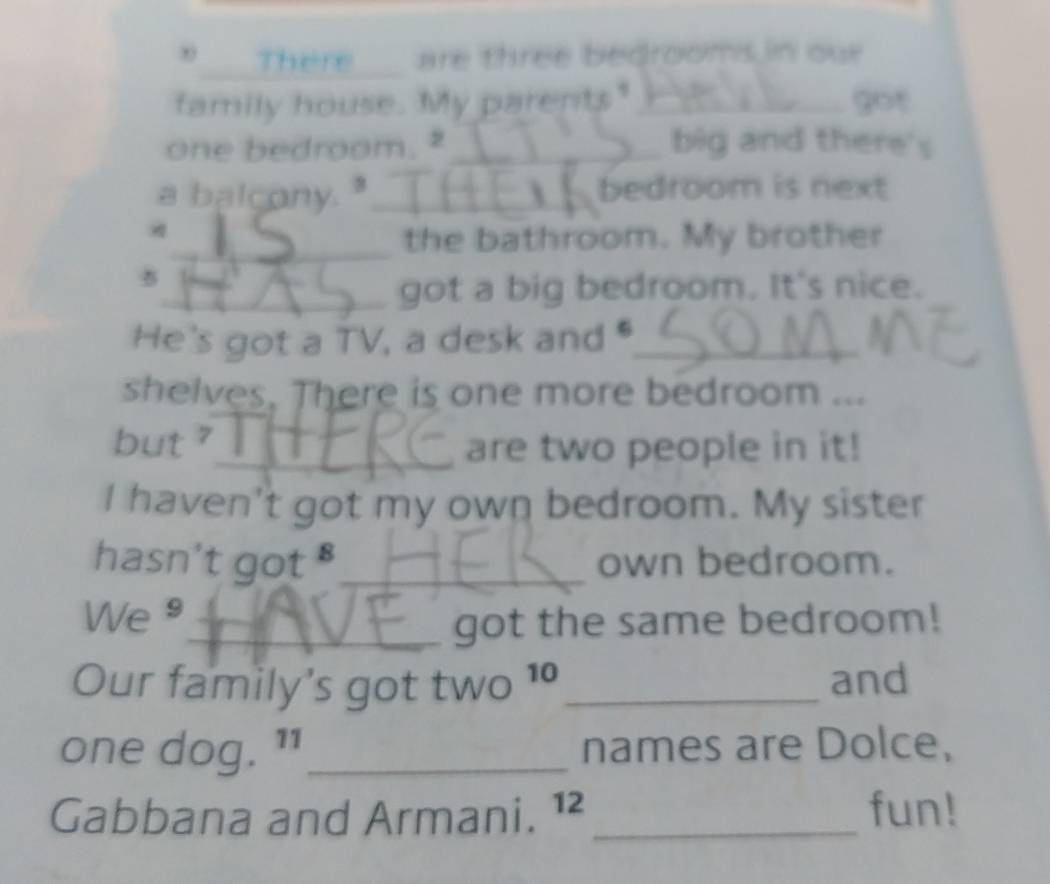 0 There are three bedrooms in our
family house. My parents 1 HAVE got
one bedroom. 2 IT'S big and there's
a balcony. 3 THEIR bedroom is next
4 IS the bathroom. My brother
5 HAS got a big bedroom. It's nice.
He's got a TV, a desk and 6 SOMME
shelves. There is one more bedroom ...
but 7 THERE are two people in it!
I haven't got my own bedroom. My sister
hasn't got 8 HER own bedroom.
We 9 HAVE got the same bedroom!
Our family's got two 10 ________ and
one dog. 11 ________ names are Dolce,
Gabbana and Armani. 12 ________ fun!